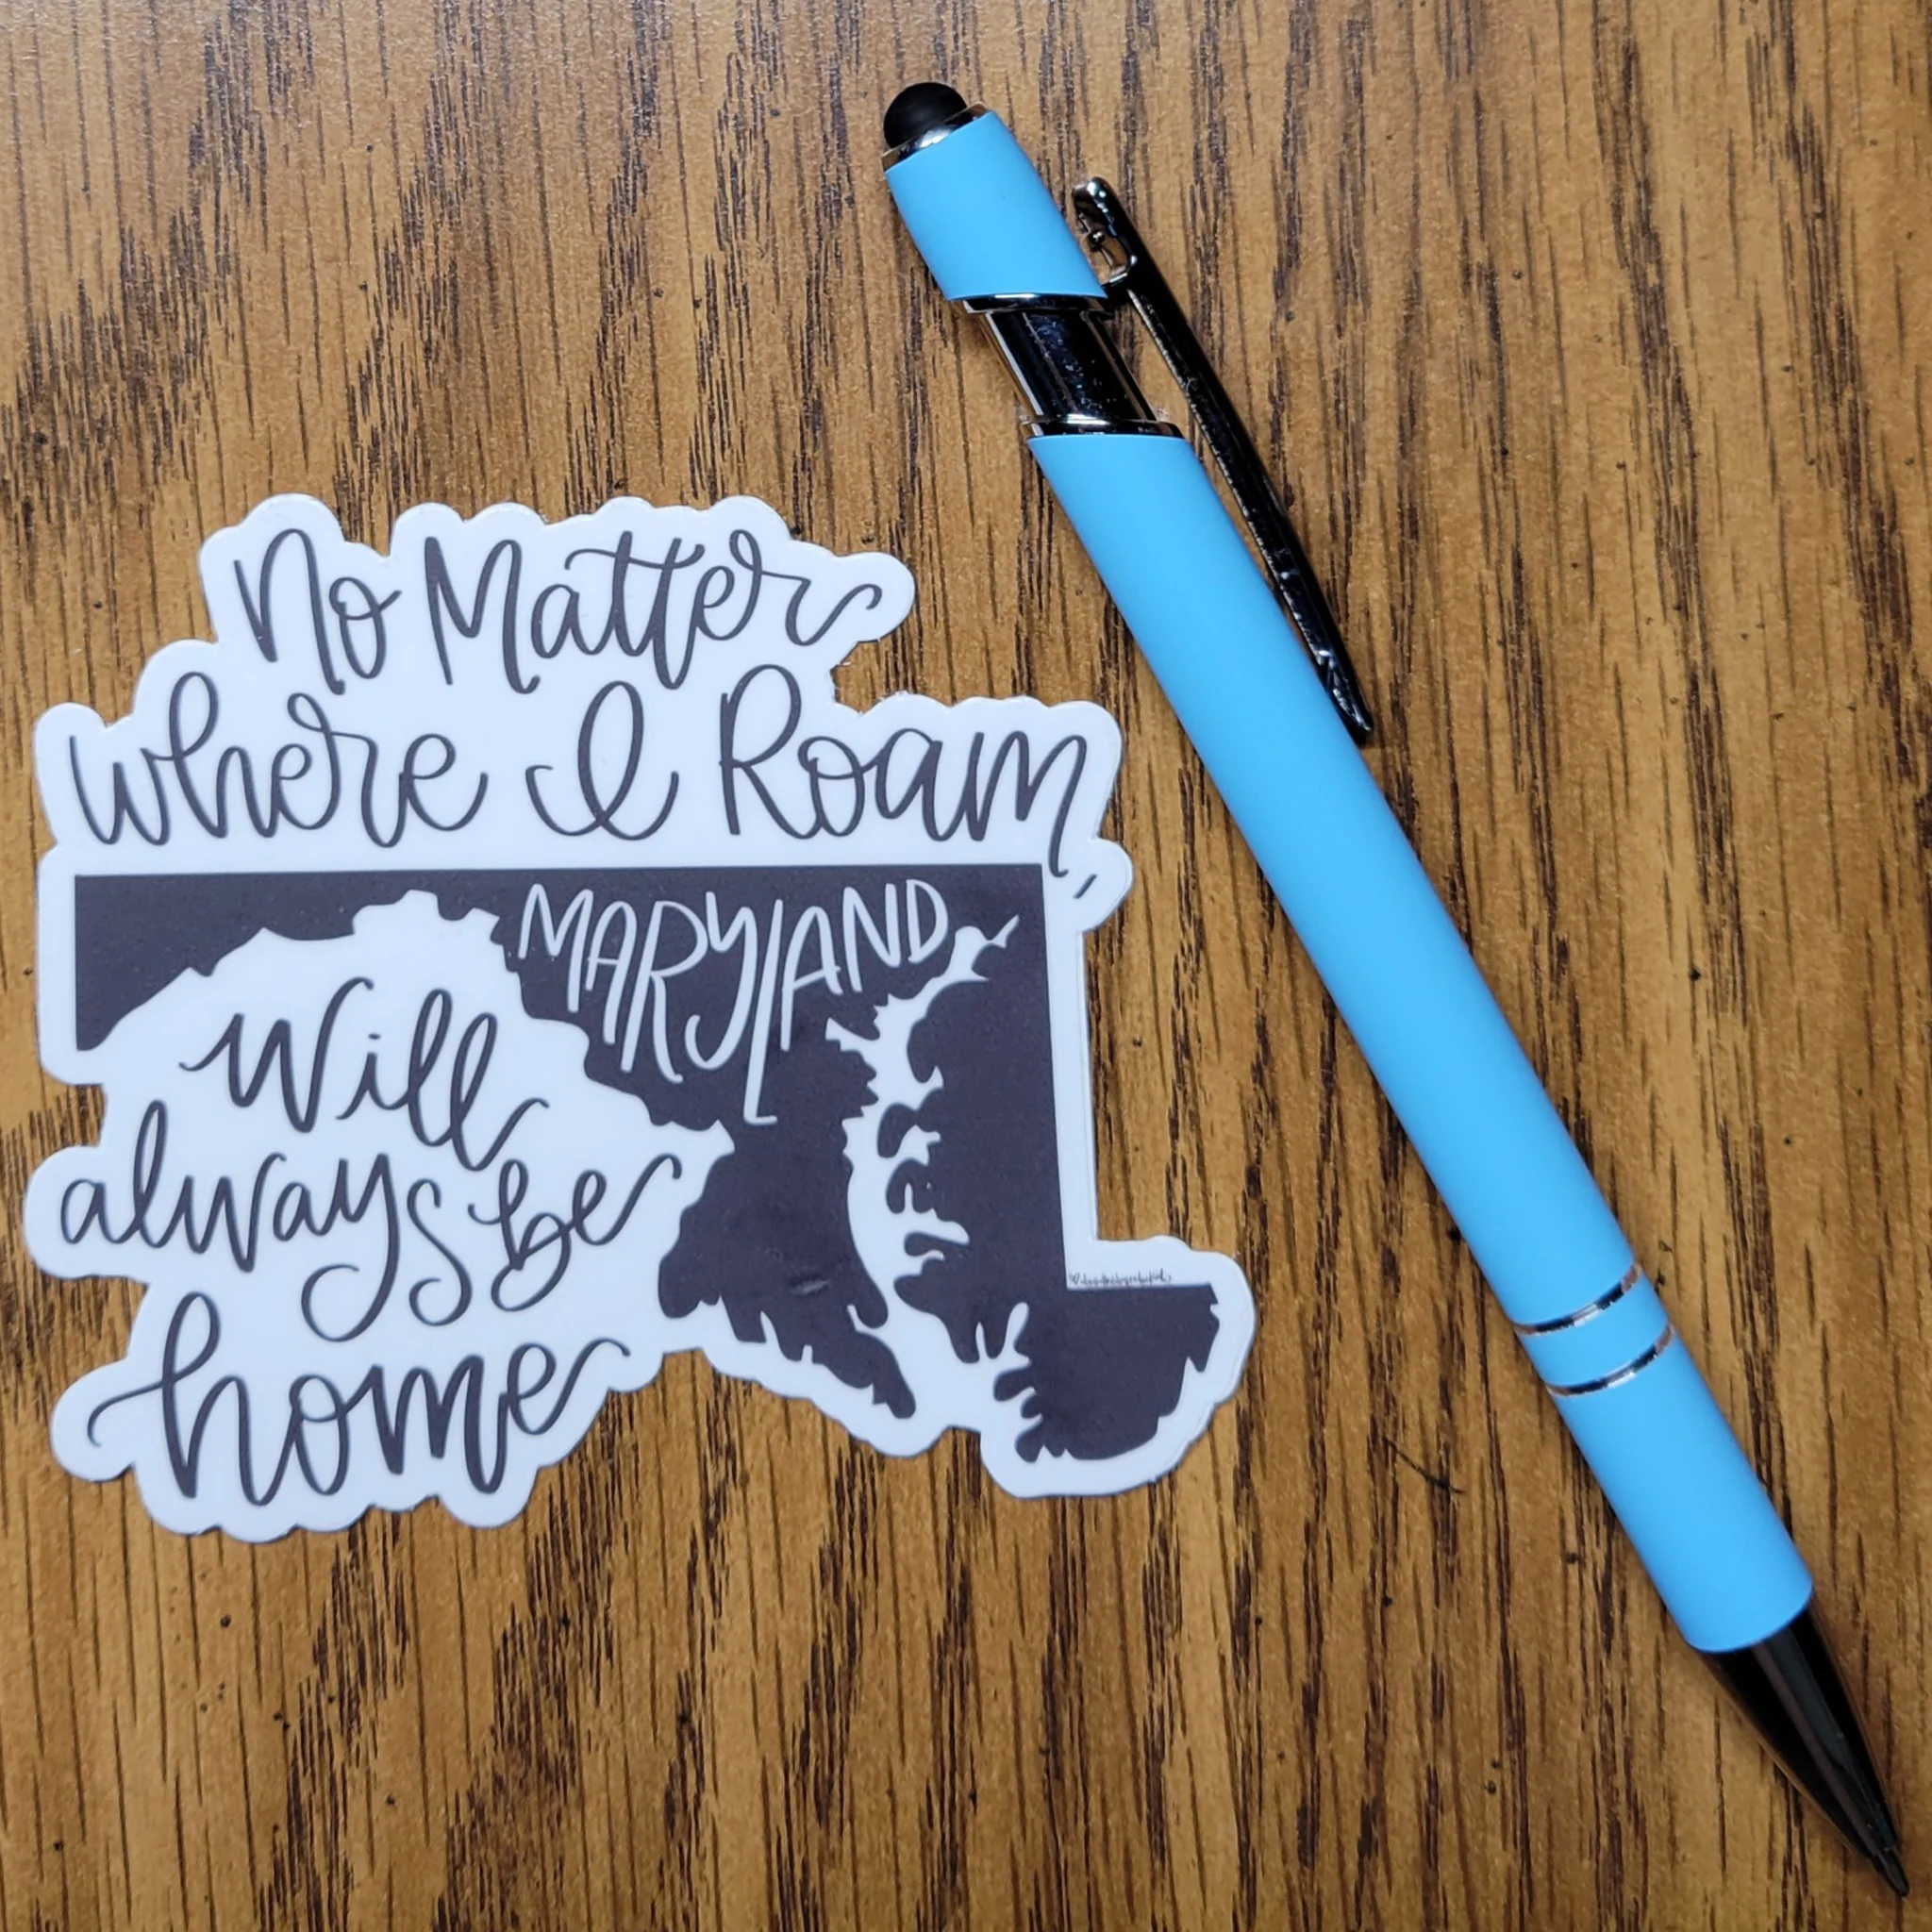 No Matter
where I Roam,
MARYLAND
Will
always be
home